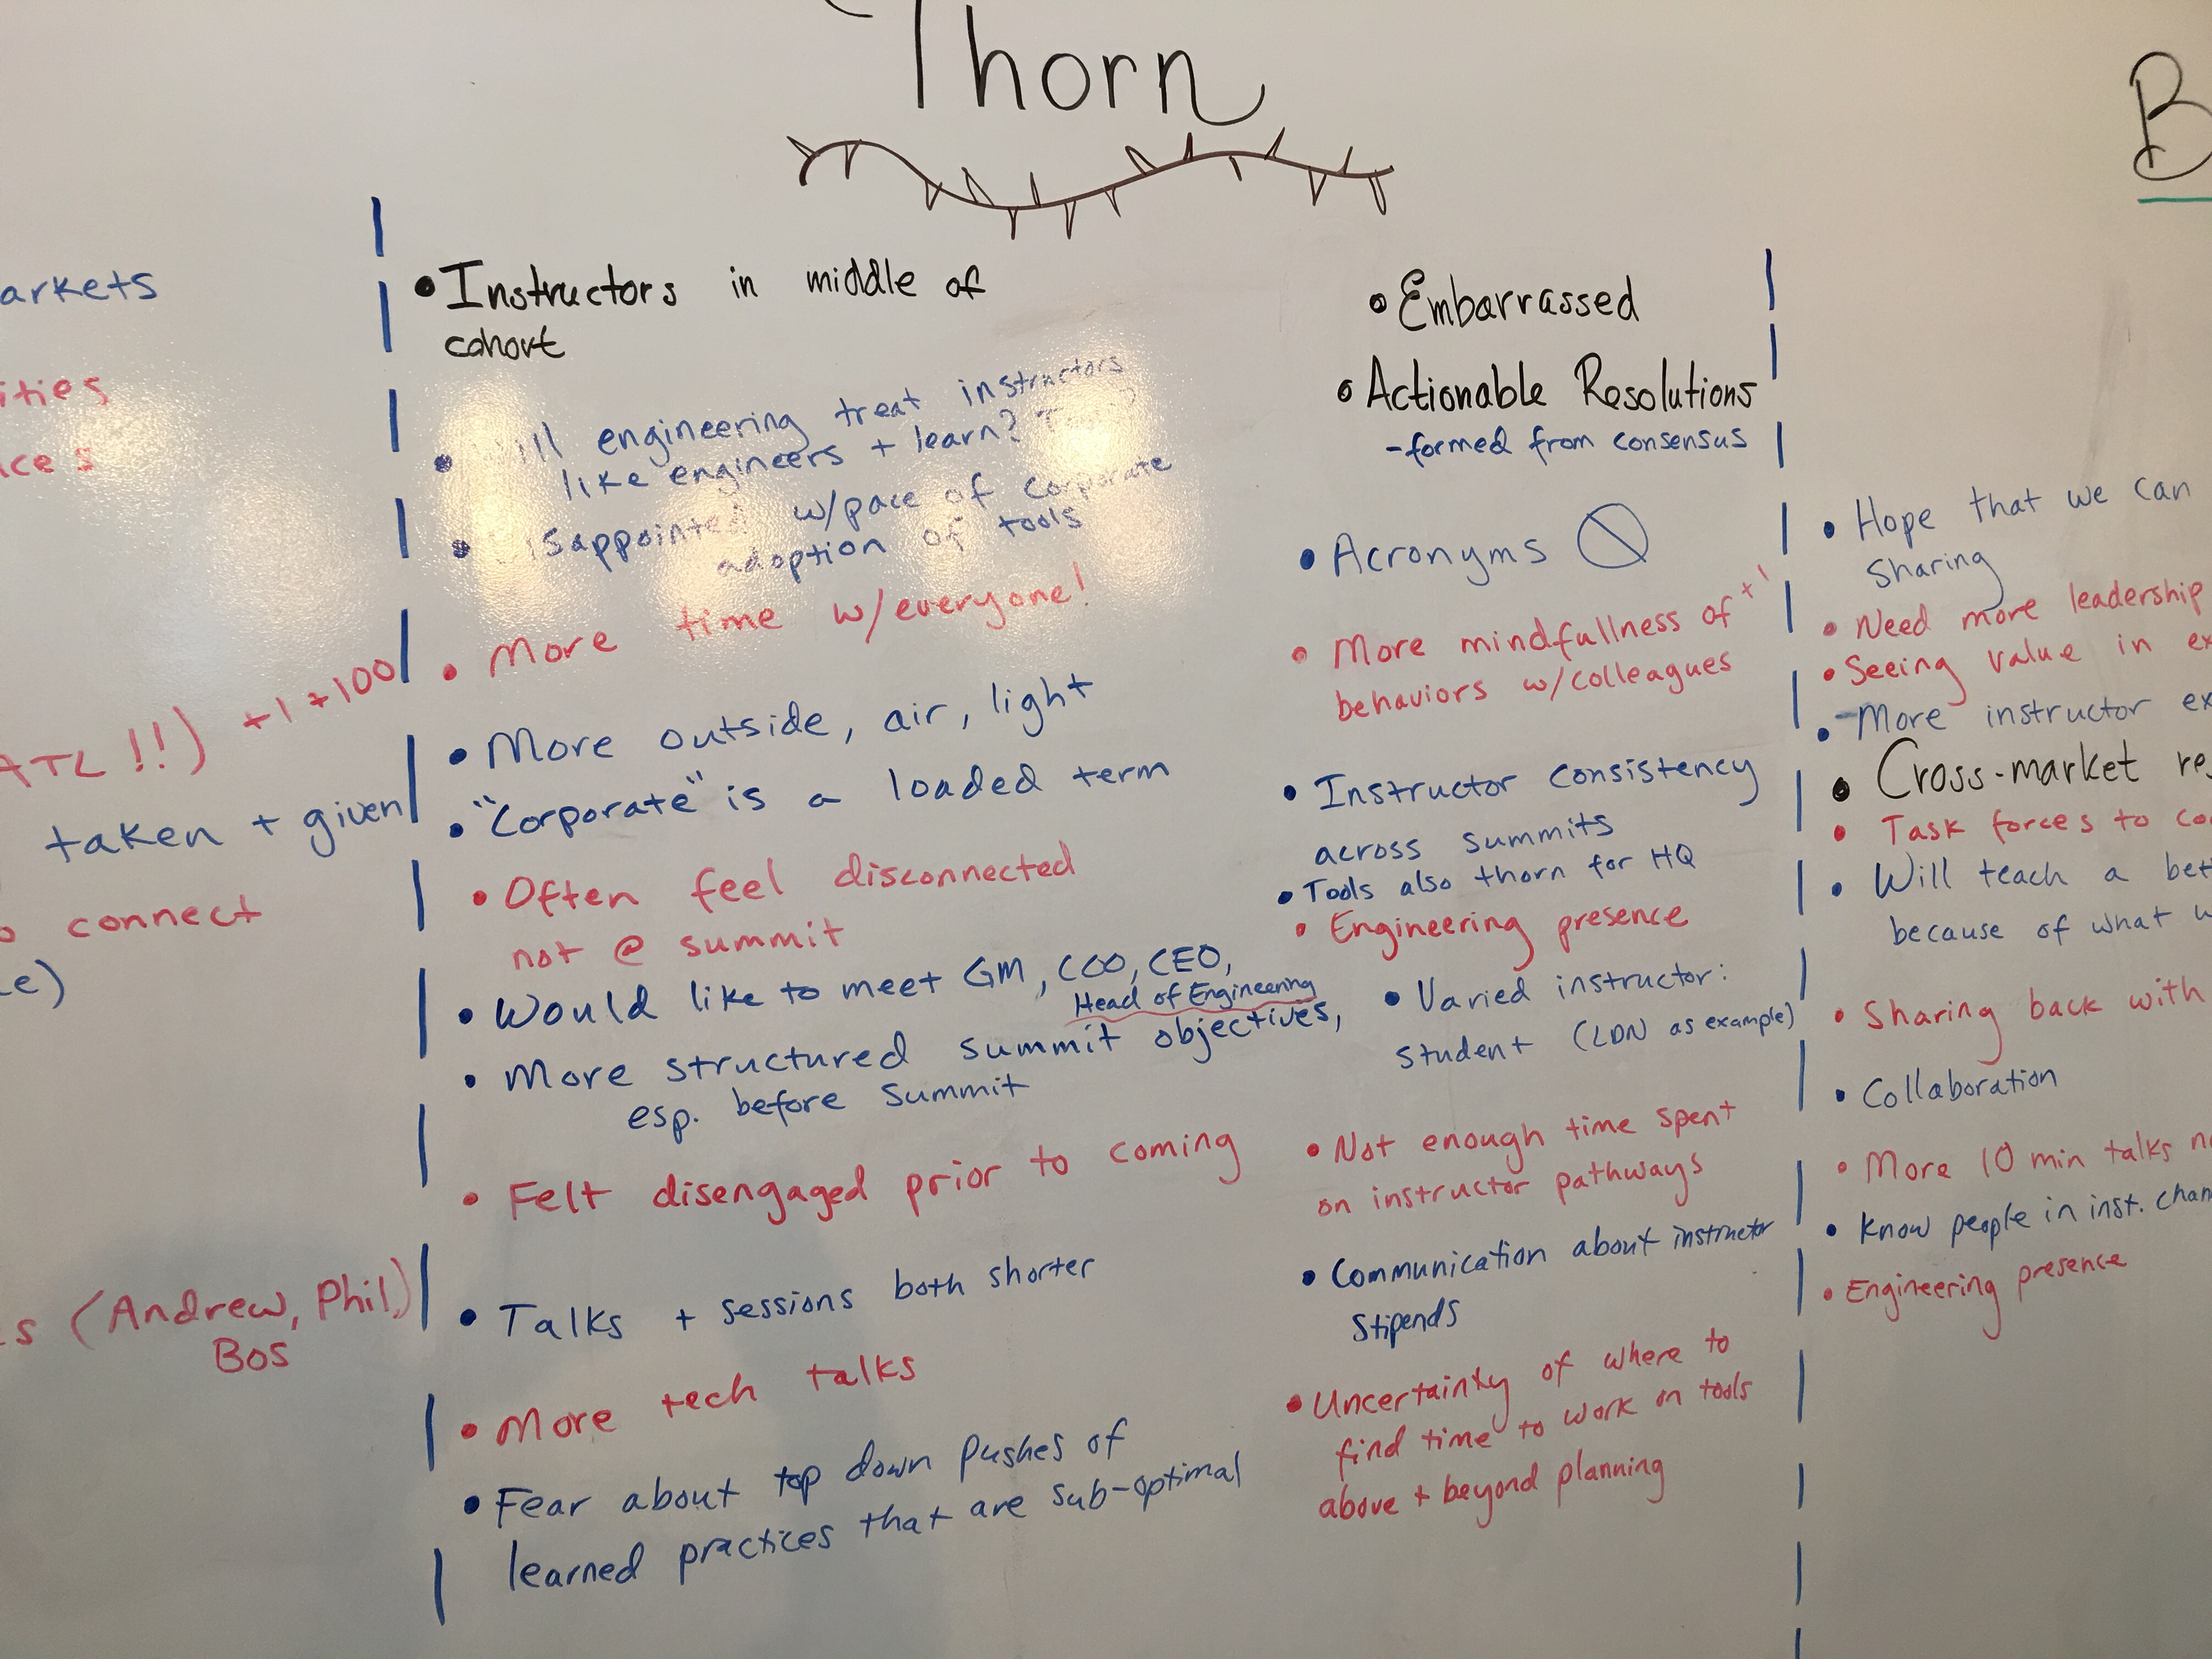 Thorn
B
arkets
ities
ces
ATL!!) +1 +100
taken + given
connect
e)
s (Andrew, Phil,)
Bos
• Instructors in middle of
cohort
• Will engineering treat instructors
like engineers + learn?
• Disappointed w/pace of corporate
adoption of tools
• More time w/everyone!
• More outside, air, light
• "Corporate" is a loaded term
• Often feel disconnected
not @ summit
• Would like to meet GM, COO, CEO,
Head of Engineering
• More structured summit objectives,
esp. before Summit
• Felt disengaged prior to coming
• Talks + sessions both shorter
• More tech talks
• Fear about top down pushes of
learned practices that are sub-optimal
• Embarrassed
• Actionable Resolutions
- formed from consensus
• Acronyms
• More mindfullness of +1
behaviors w/colleagues
• Instructor Consistency
across summits
• Tools also thorn for HQ
• Engineering presence
• Varied instructor:
student (LDN as example)
• Not enough time spent
on instructor pathways
• Communication about instructor
Stipends
• Uncertainty of where to
find time to work on tools
above + beyond planning
• Hope that we can
sharing
• Need more leadership
• Seeing value in ex
• More instructor ex
• Cross-market re
• Task forces to co
• Will teach a bet
because of what w
• Sharing back with
• Collaboration
• More 10 min talks n
• Know people in inst. chan
• Engineering presence